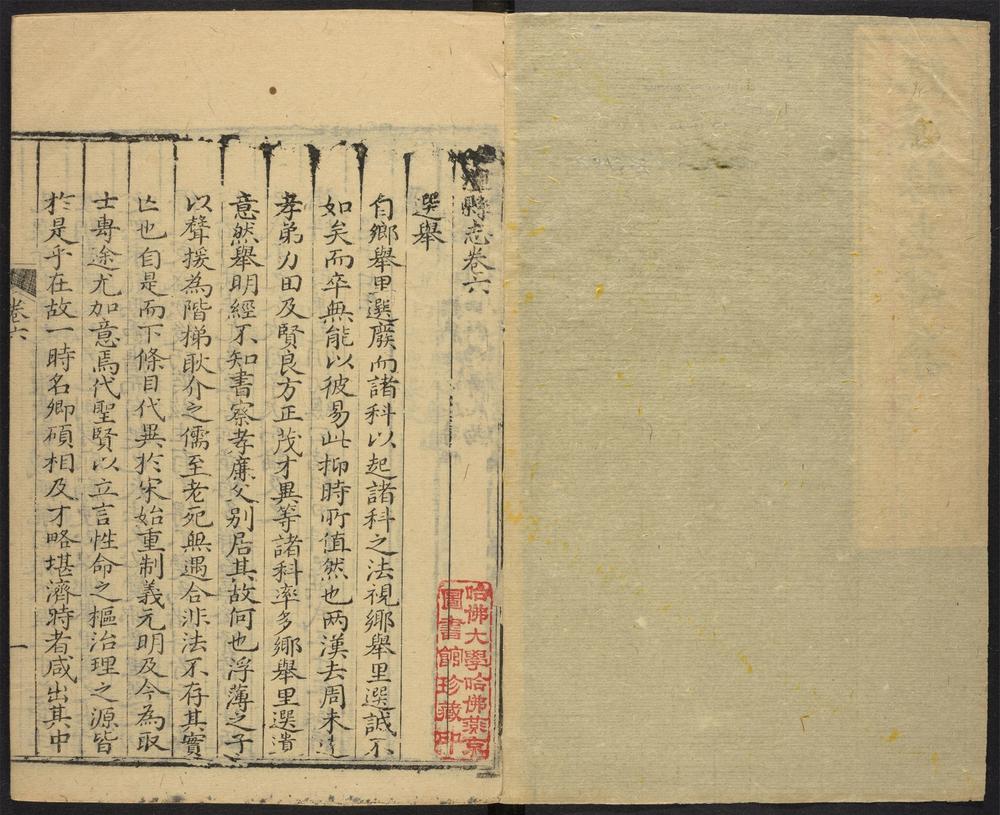 縣志卷六
選舉
自鄉舉里選廢而諸科以起諸科之法視鄉舉里選誠不
如矣而卒無能以彼易此抑時所值然也两漢去周未
孝弟力田及賢良方正茂才異等諸科率多鄉舉里選遺
意然舉明經不知書察孝廉父别居其故何也浮薄之子
以聲援為階梯耿介之儒至老死無遇合非法不存其實
亡也自是而下條目代異於宋始重制義元明及今為取
士專途尤加意焉代聖賢以立言性命之樞治理之源皆
於是乎在故一時名卿碩相及才略堪濟時者咸出其中
卷六
一
哈佛大學哈佛燕京
圖書館珍藏印